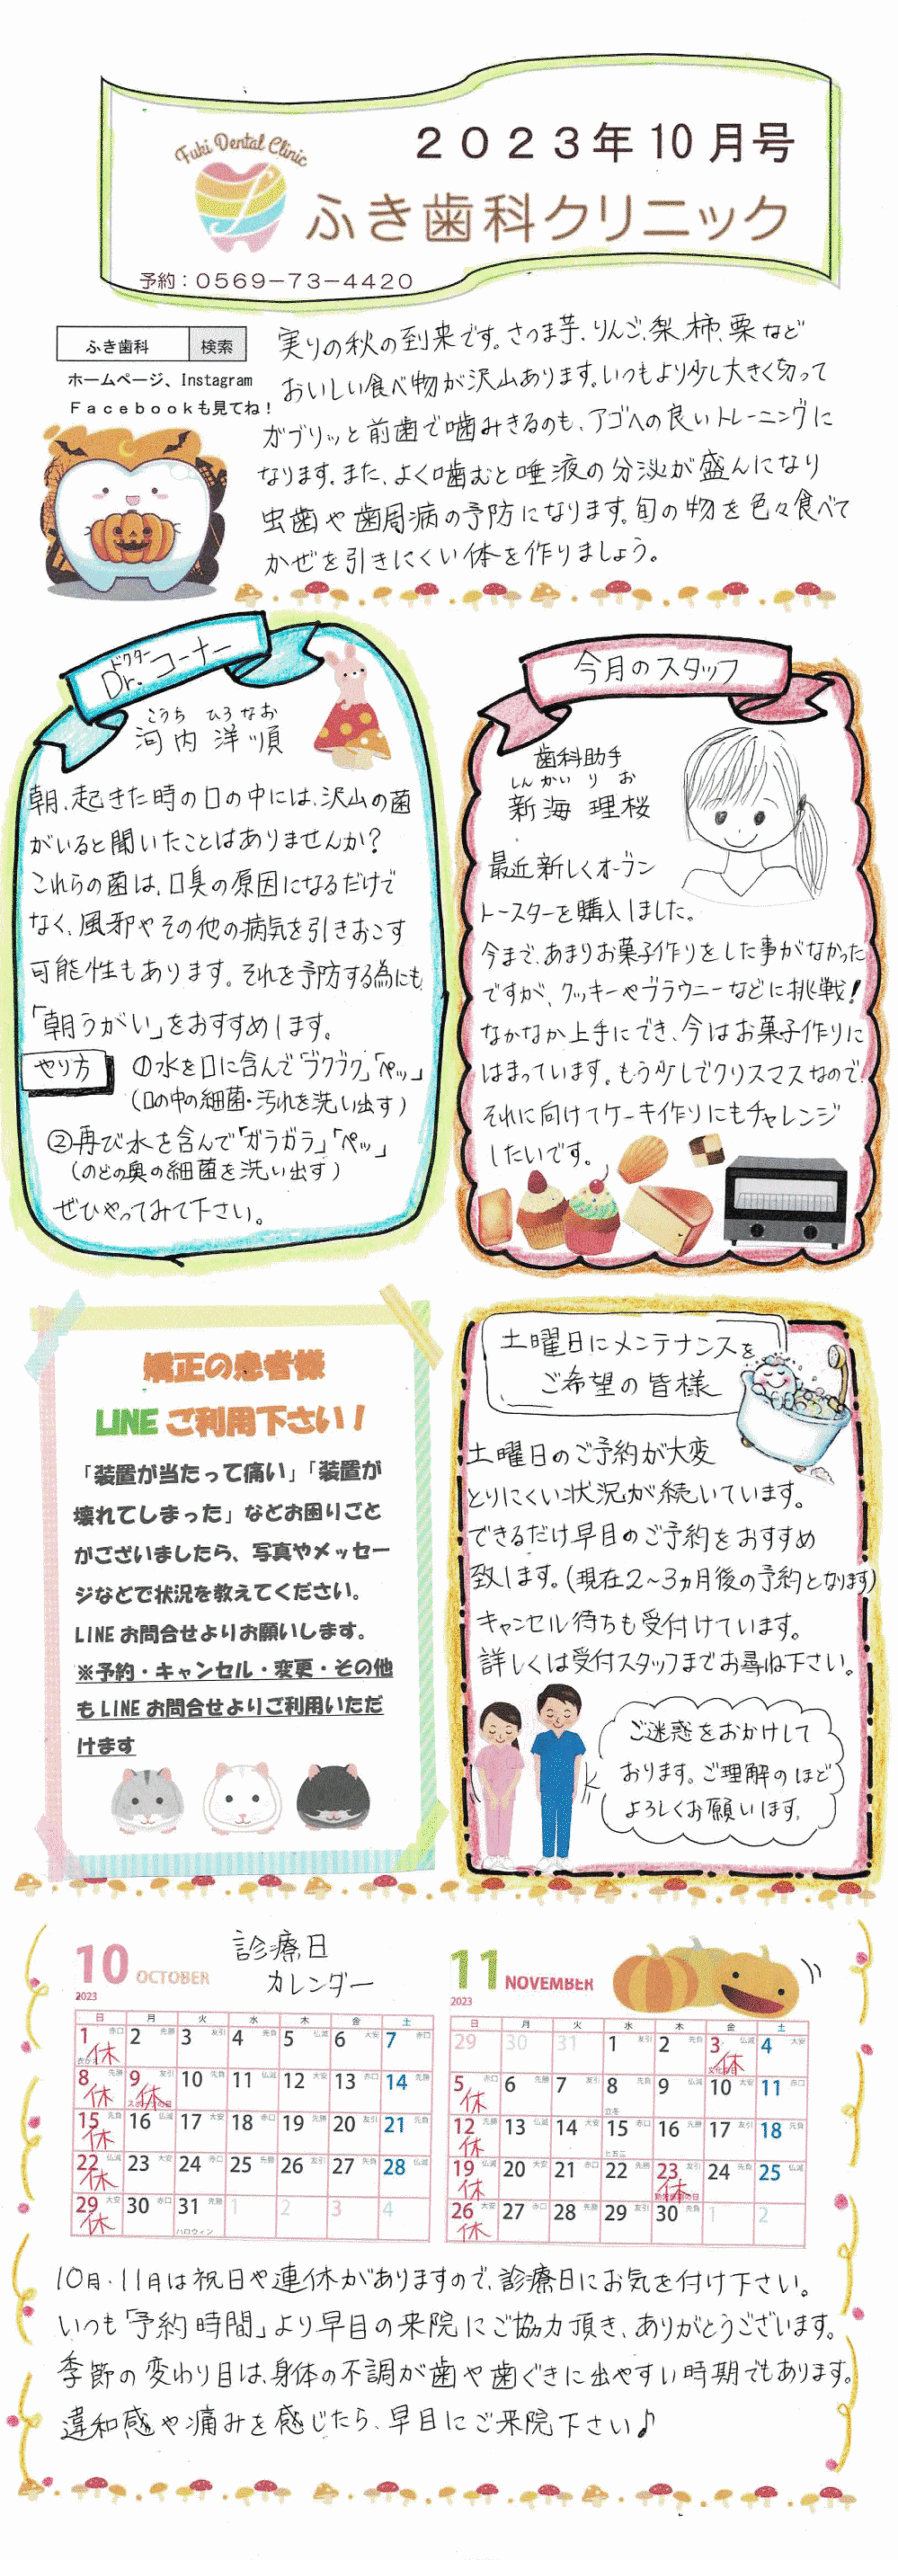 Fuki Dental Clinic
2023年10月号
ふき歯科クリニック
予約：0569-73-4420
ふき歯科 検索
ホームページ、Instagram
Facebookも見てね！
実りの秋の到来です。さつま芋、りんご、梨、柿、栗など
おいしい食べ物が沢山あります。いつもより少し大きく切って
ガブリッと前歯で噛みきるのも、アゴへの良いトレーニングに
なります。また、よく噛むと唾液の分泌が盛んになり
虫歯や歯周病の予防になります。旬の物を色々食べて
かぜを引きにくい体を作りましょう。
ドクター
Dr.コーナー
こうち ひろなお
河内 洋順
朝、起きた時の口の中には、沢山の菌
がいると聞いたことはありませんか？
これらの菌は、口臭の原因になるだけで
なく、風邪やその他の病気を引きおこす
可能性もあります。それを予防する為にも
「朝うがい」をおすすめします。
やり方 ①水を口に含んで「ブクブク」「ペッ」
（口の中の細菌・汚れを洗い出す）
②再び水を含んで「ガラガラ」「ペッ」
（のどの奥の細菌を洗い出す）
ぜひやってみて下さい。
今月のスタッフ
歯科助手
しんかい りお
新海 理桜
最近新しくオーブン
トースターを購入しました。
今まで、あまりお菓子作りをした事がなかった
ですが、クッキーやブラウニーなどに挑戦！
なかなか上手にでき、今はお菓子作りに
はまっています。もう少しでクリスマスなので、
それに向けてケーキ作りにもチャレンジ
したいです。
矯正の患者様
LINEご利用下さい！
「装置が当たって痛い」「装置が
壊れてしまった」などお困りごと
がございましたら、写真やメッセー
ジなどで状況を教えてください。
LINEお問合せよりお願いします。
※予約・キャンセル・変更・その他
もLINEお問合せよりご利用いただ
けます
土曜日にメンテナンスを
ご希望の皆様
土曜日のご予約が大変
とりにくい状況が続いています。
できるだけ早目のご予約をおすすめ
致します。（現在2〜3ヵ月後の予約となります）
キャンセル待ちも受付けています。
詳しくは受付スタッフまでお尋ね下さい。
ご迷惑をおかけして
おります。ご理解のほど
よろしくお願いします。
診療日
カレンダー
10 OCTOBER
2023
日 月 火 水 木 金 土
1 休 2 3 4 5 6 7
8 休 9 休 10 11 12 13 14
15 休 16 17 18 19 20 21
22 休 23 24 25 26 27 28
29 休 30 31 1 2 3 4
ハロウィン
11 NOVEMBER
2023
日 月 火 水 木 金 土
29 30 31 1 2 3 休 4
5 休 6 7 8 9 10 11
12 休 13 14 15 16 17 18
19 休 20 21 22 23 休 24 25
26 休 27 28 29 30 1 2
10月・11月は祝日や連休がありますので、診療日にお気を付け下さい。
いつも「予約時間」より早目の来院にご協力頂き、ありがとうございます。
季節の変わり目は、身体の不調が歯や歯ぐきに出やすい時期でもあります。
違和感や痛みを感じたら、早目にご来院下さい♪